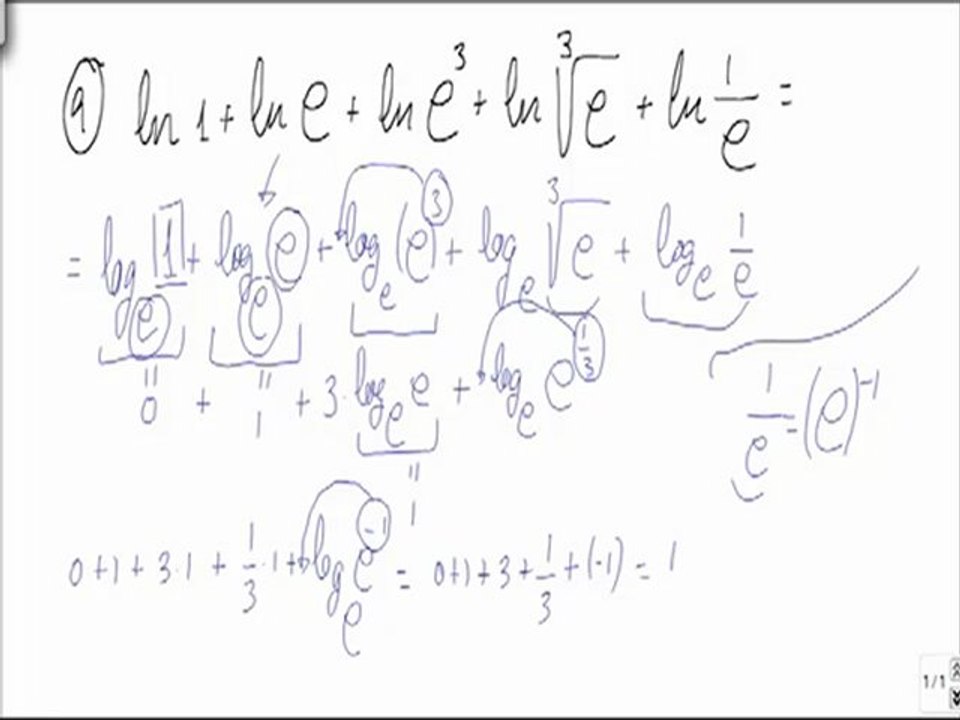 9) ln 1 + ln e + ln e³ + ln ∛e + ln 1/e =
= log_e 1 + log_e e + log_e (e)³ + log_e ∛e + log_e 1/e
0 + 1 + 3 · log_e e + log_e e^(1/3)
1/e = (e)^-1
1
0 + 1 + 3 · 1 + 1/3 · 1 + log_e e^-1 = 0 + 1 + 3 + 1/3 + (-1) = 1
1/1